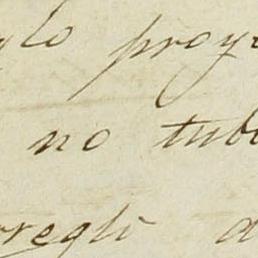 glo proye
no tubo
rregló a